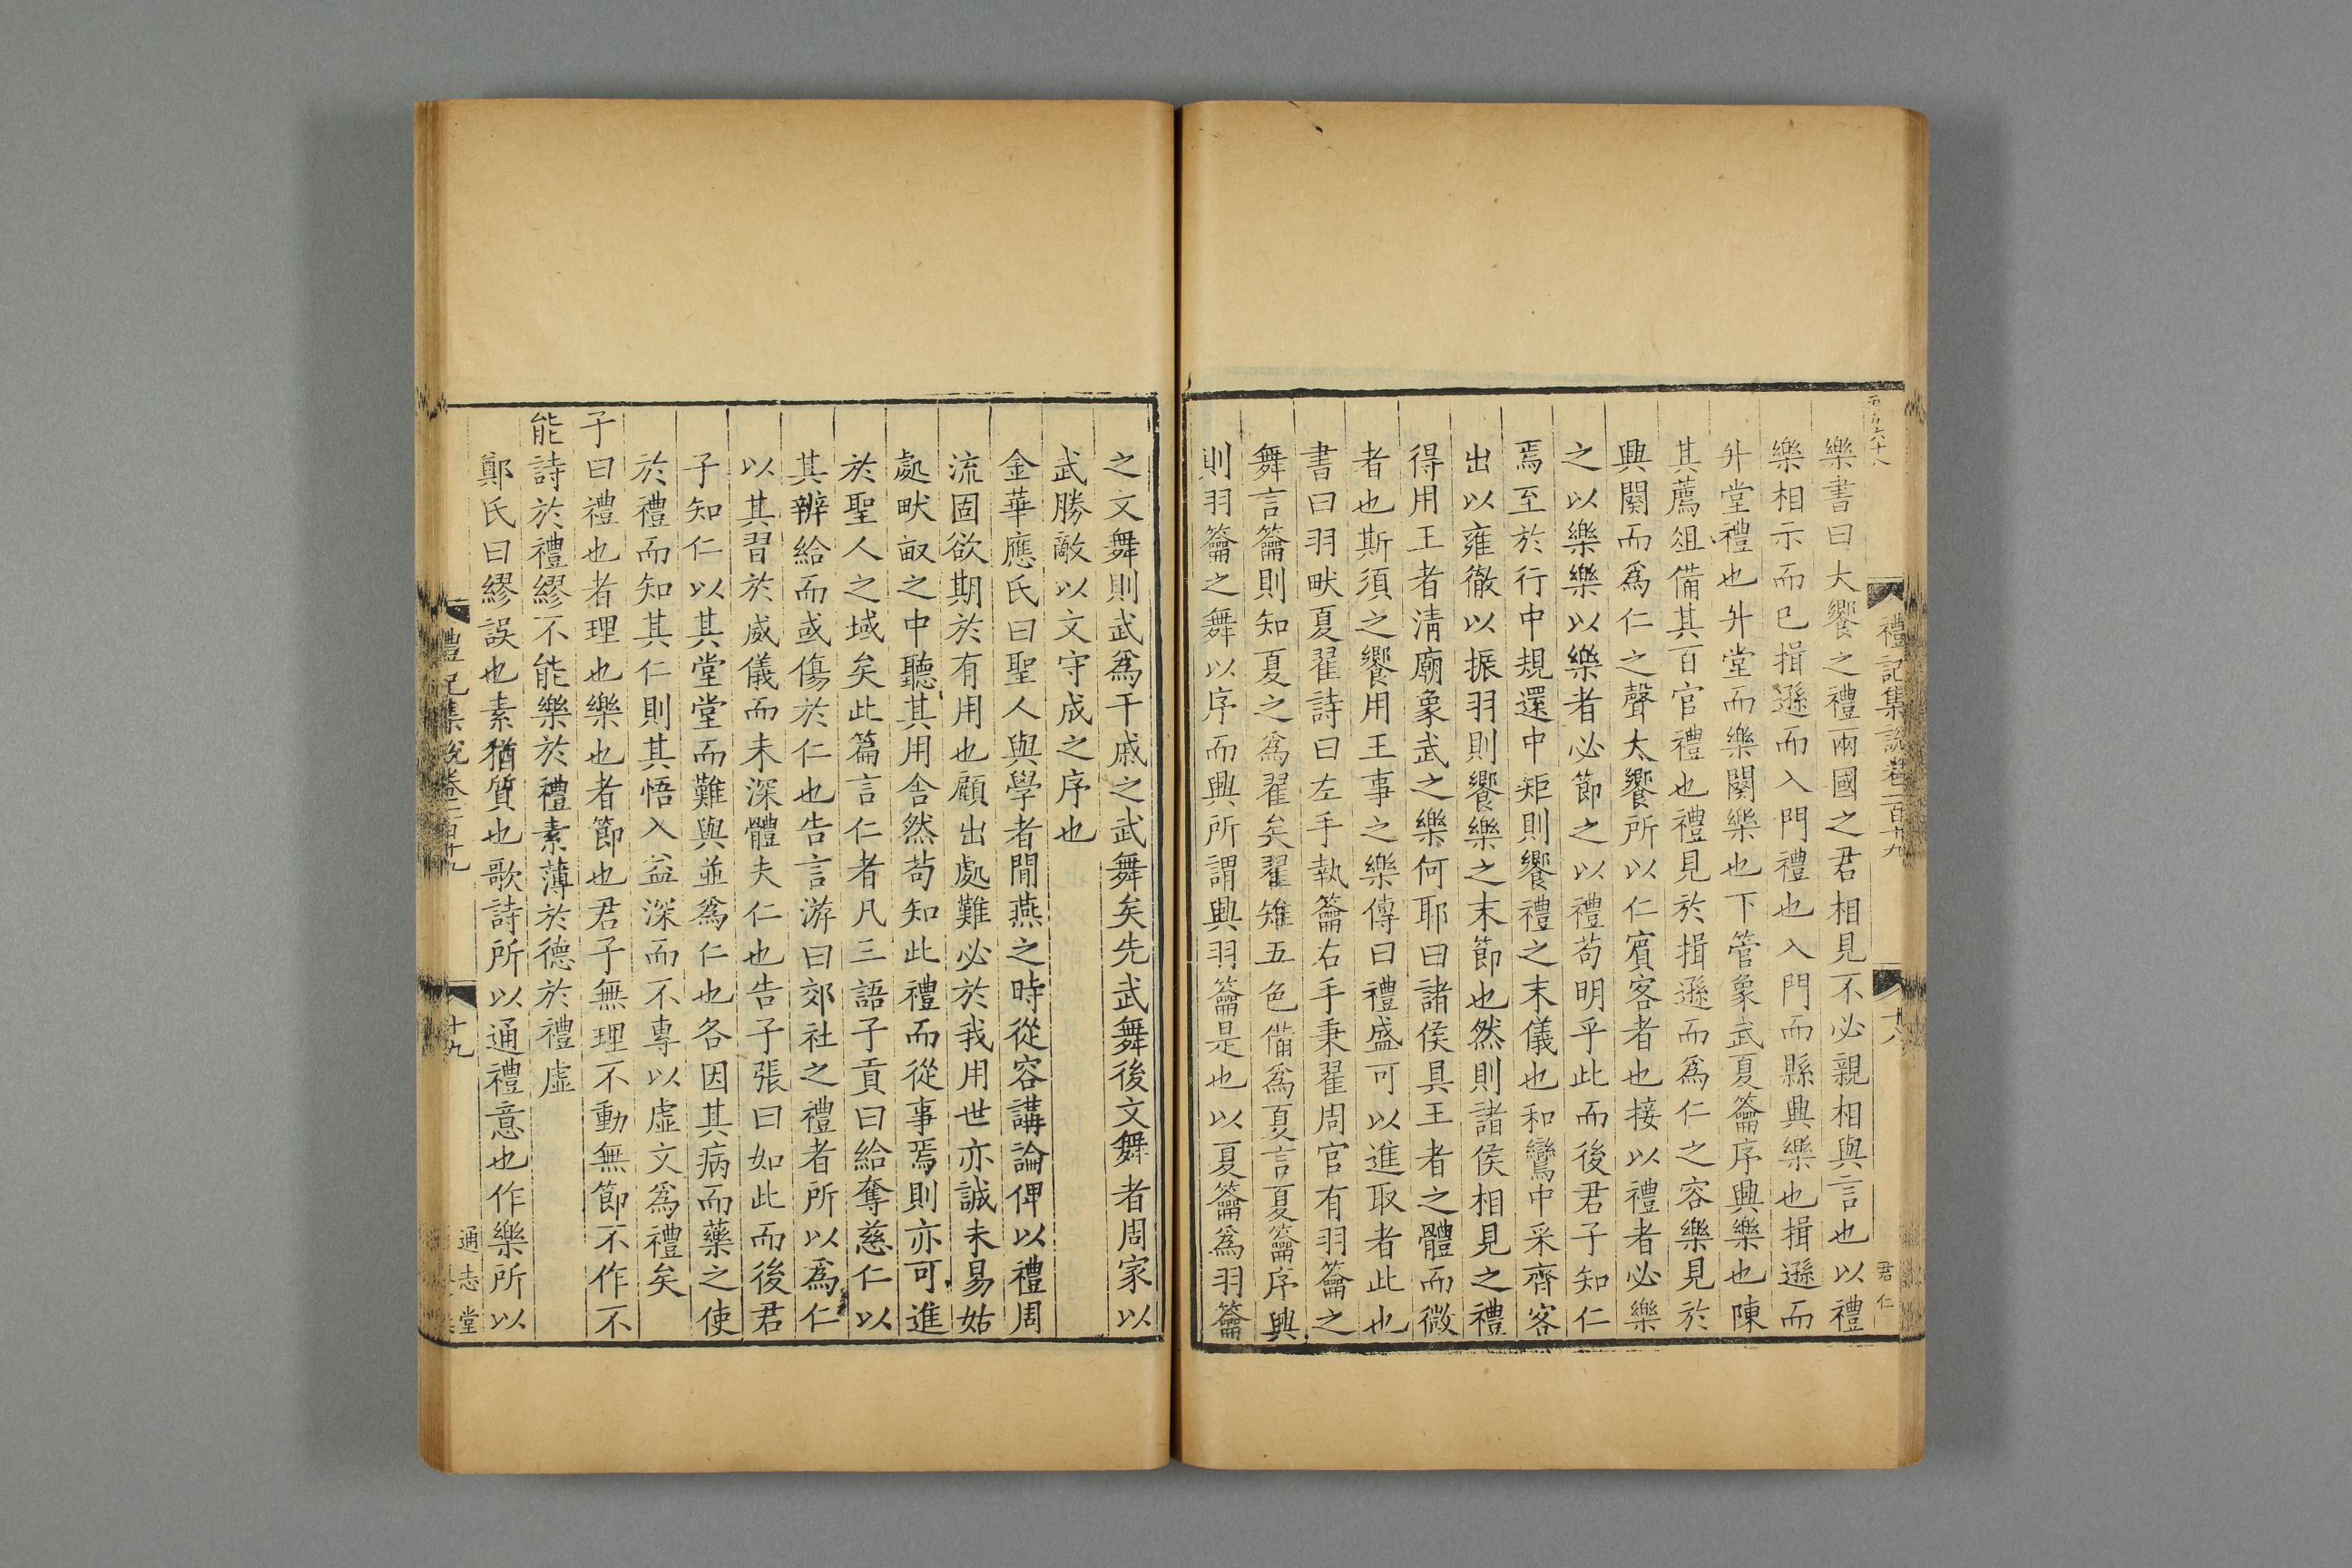 樂書曰大饗之禮兩國之君相見不必親相與言也以禮
樂相示而已揖遜而入門禮也入門而縣興樂也揖遜而
升堂禮也升堂而樂闋樂也下管象武夏籥序興樂也陳
其薦俎備其百官禮也禮見於揖遜而爲仁之容樂見於
興闋而爲仁之聲大饗所以仁賓客者也接以禮者必樂
之以樂樂以樂者必節之以禮苟明乎此而後君子知仁
焉至於行中規還中矩則饗禮之末儀也和鸞中采齊客
出以雍徹以振羽則饗樂之末節也然則諸侯相見之禮
得用王者淸廟象武之樂何耶曰諸侯具王者之體而微
者也斯須之饗用王事之樂傳曰禮盛可以進取者此也
書曰羽畎夏翟詩曰左手執籥右手秉翟周官有羽籥之
舞言籥則知夏之爲翟矣翟雉五色備爲夏言夏籥序興
則羽籥之舞以序而興所謂興羽籥是也以夏籥爲羽籥
禮記集說卷一百十九
十八
君仁
之文舞則武爲干戚之武舞矣先武舞後文舞者周家以
武勝敵以文守成之序也
金華應氏曰聖人與學者閒燕之時從容講論俾以禮周
流固欲期於有用也顧出處難必於我用世亦誠未易姑
處畎畝之中聽其用舍然苟知此禮而從事焉則亦可進
於聖人之域矣此篇言仁者凡三語子貢曰給奪慈仁以
其辨給而或傷於仁也告言游曰郊社之禮者所以爲仁
以其習於威儀而未深體夫仁也告子張曰如此而後君
子知仁以其堂堂而難與並爲仁也各因其病而藥之使
於禮而知其仁則其悟入益深而不專以虛文爲禮矣
子曰禮也者理也樂也者節也君子無理不動無節不作不
能詩於禮繆不能樂於禮素薄於德於禮虛
鄭氏曰繆誤也素猶質也歌詩所以通禮意也作樂所以
禮記集說卷一百十九
十九
通志堂